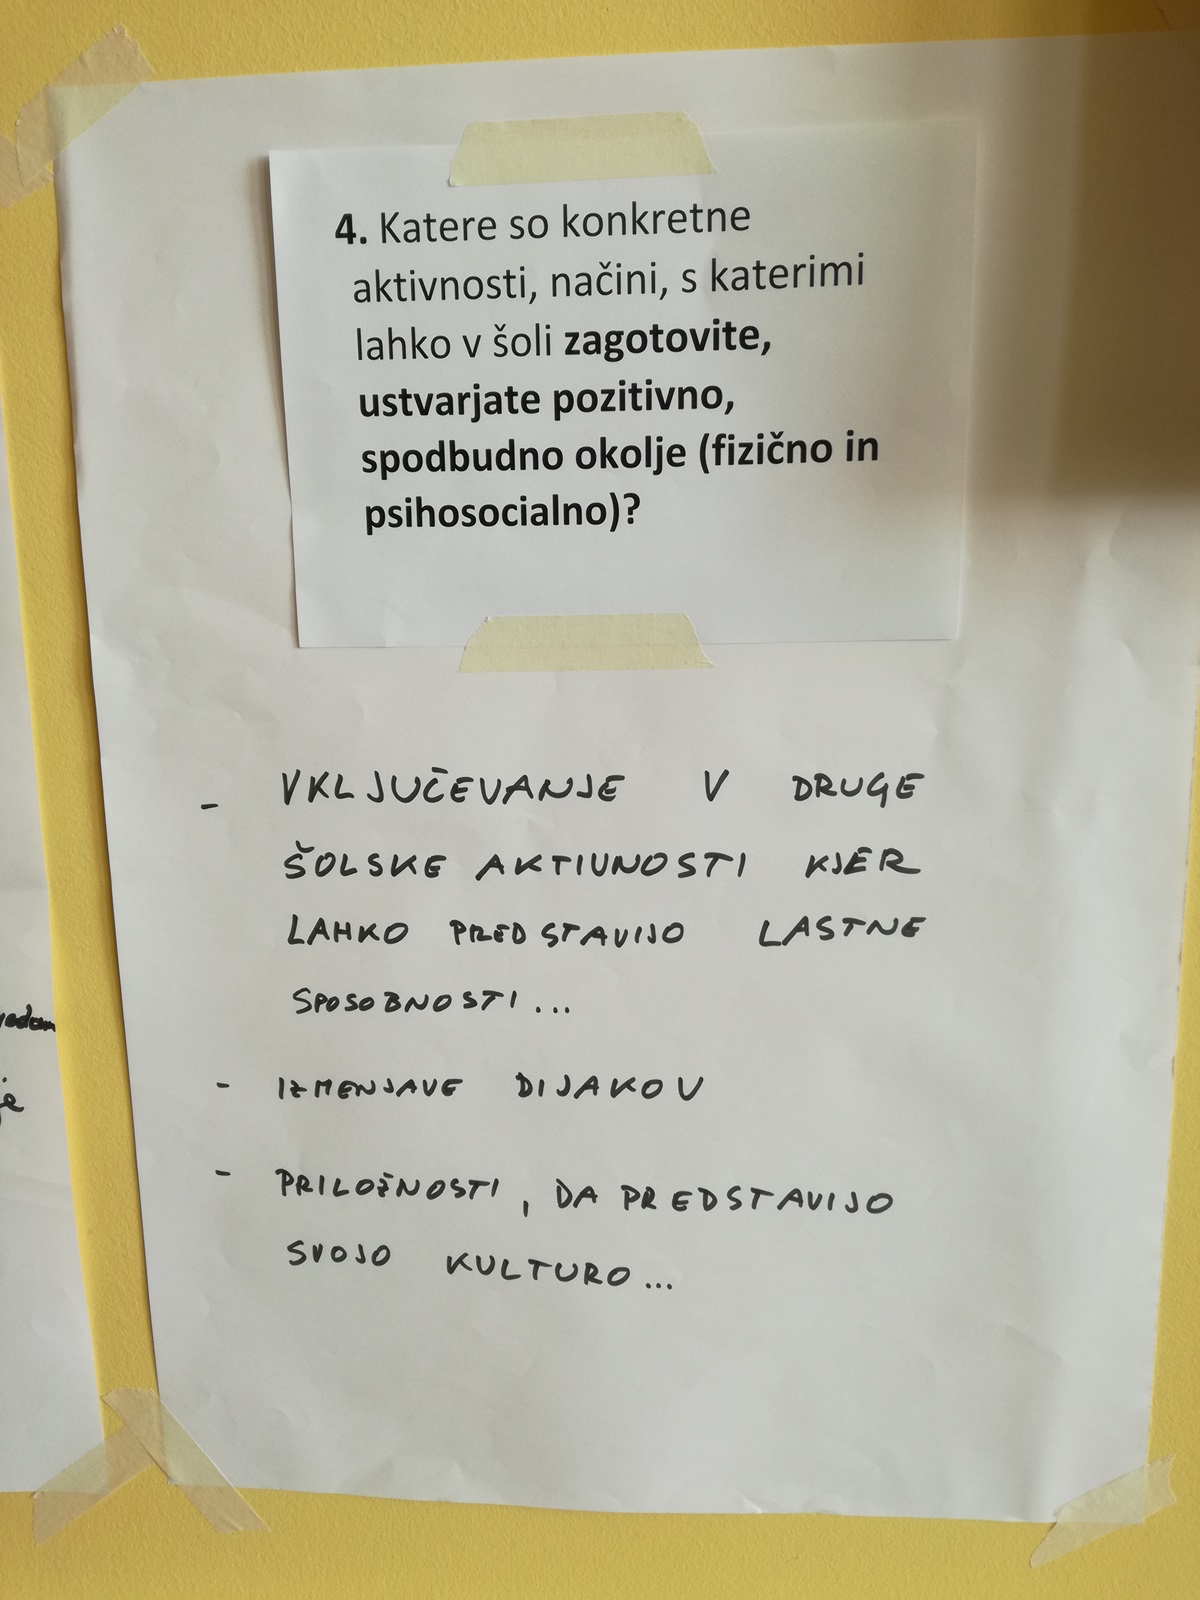 4. Katere so konkretne
aktivnosti, načini, s katerimi
lahko v šoli zagotovite,
ustvarjate pozitivno,
spodbudno okolje (fizično in
psihosocialno)?
- VKLJUČEVANJE V DRUGE
ŠOLSKE AKTIVNOSTI KJER
LAHKO PREDSTAVIJO LASTNE
SPOSOBNOSTI...
- IZMENJAVE DIJAKOV
- PRILOŽNOSTI, DA PREDSTAVIJO
SVOJO KULTURO...